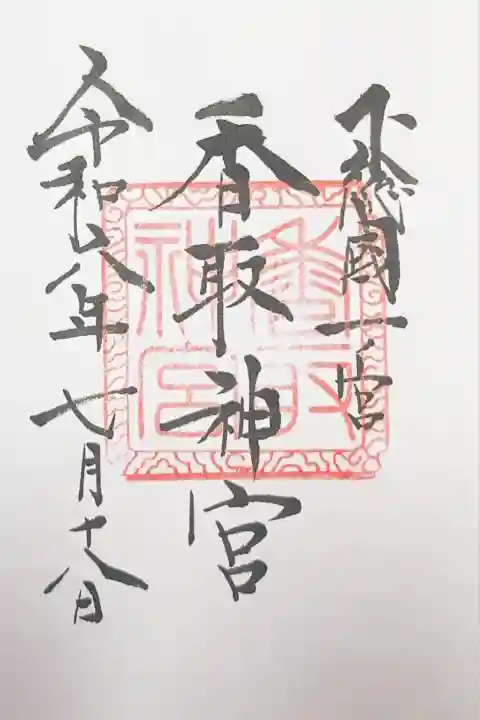 下総國一宮
香取神宮
令和六年七月十八日
香取
神宮